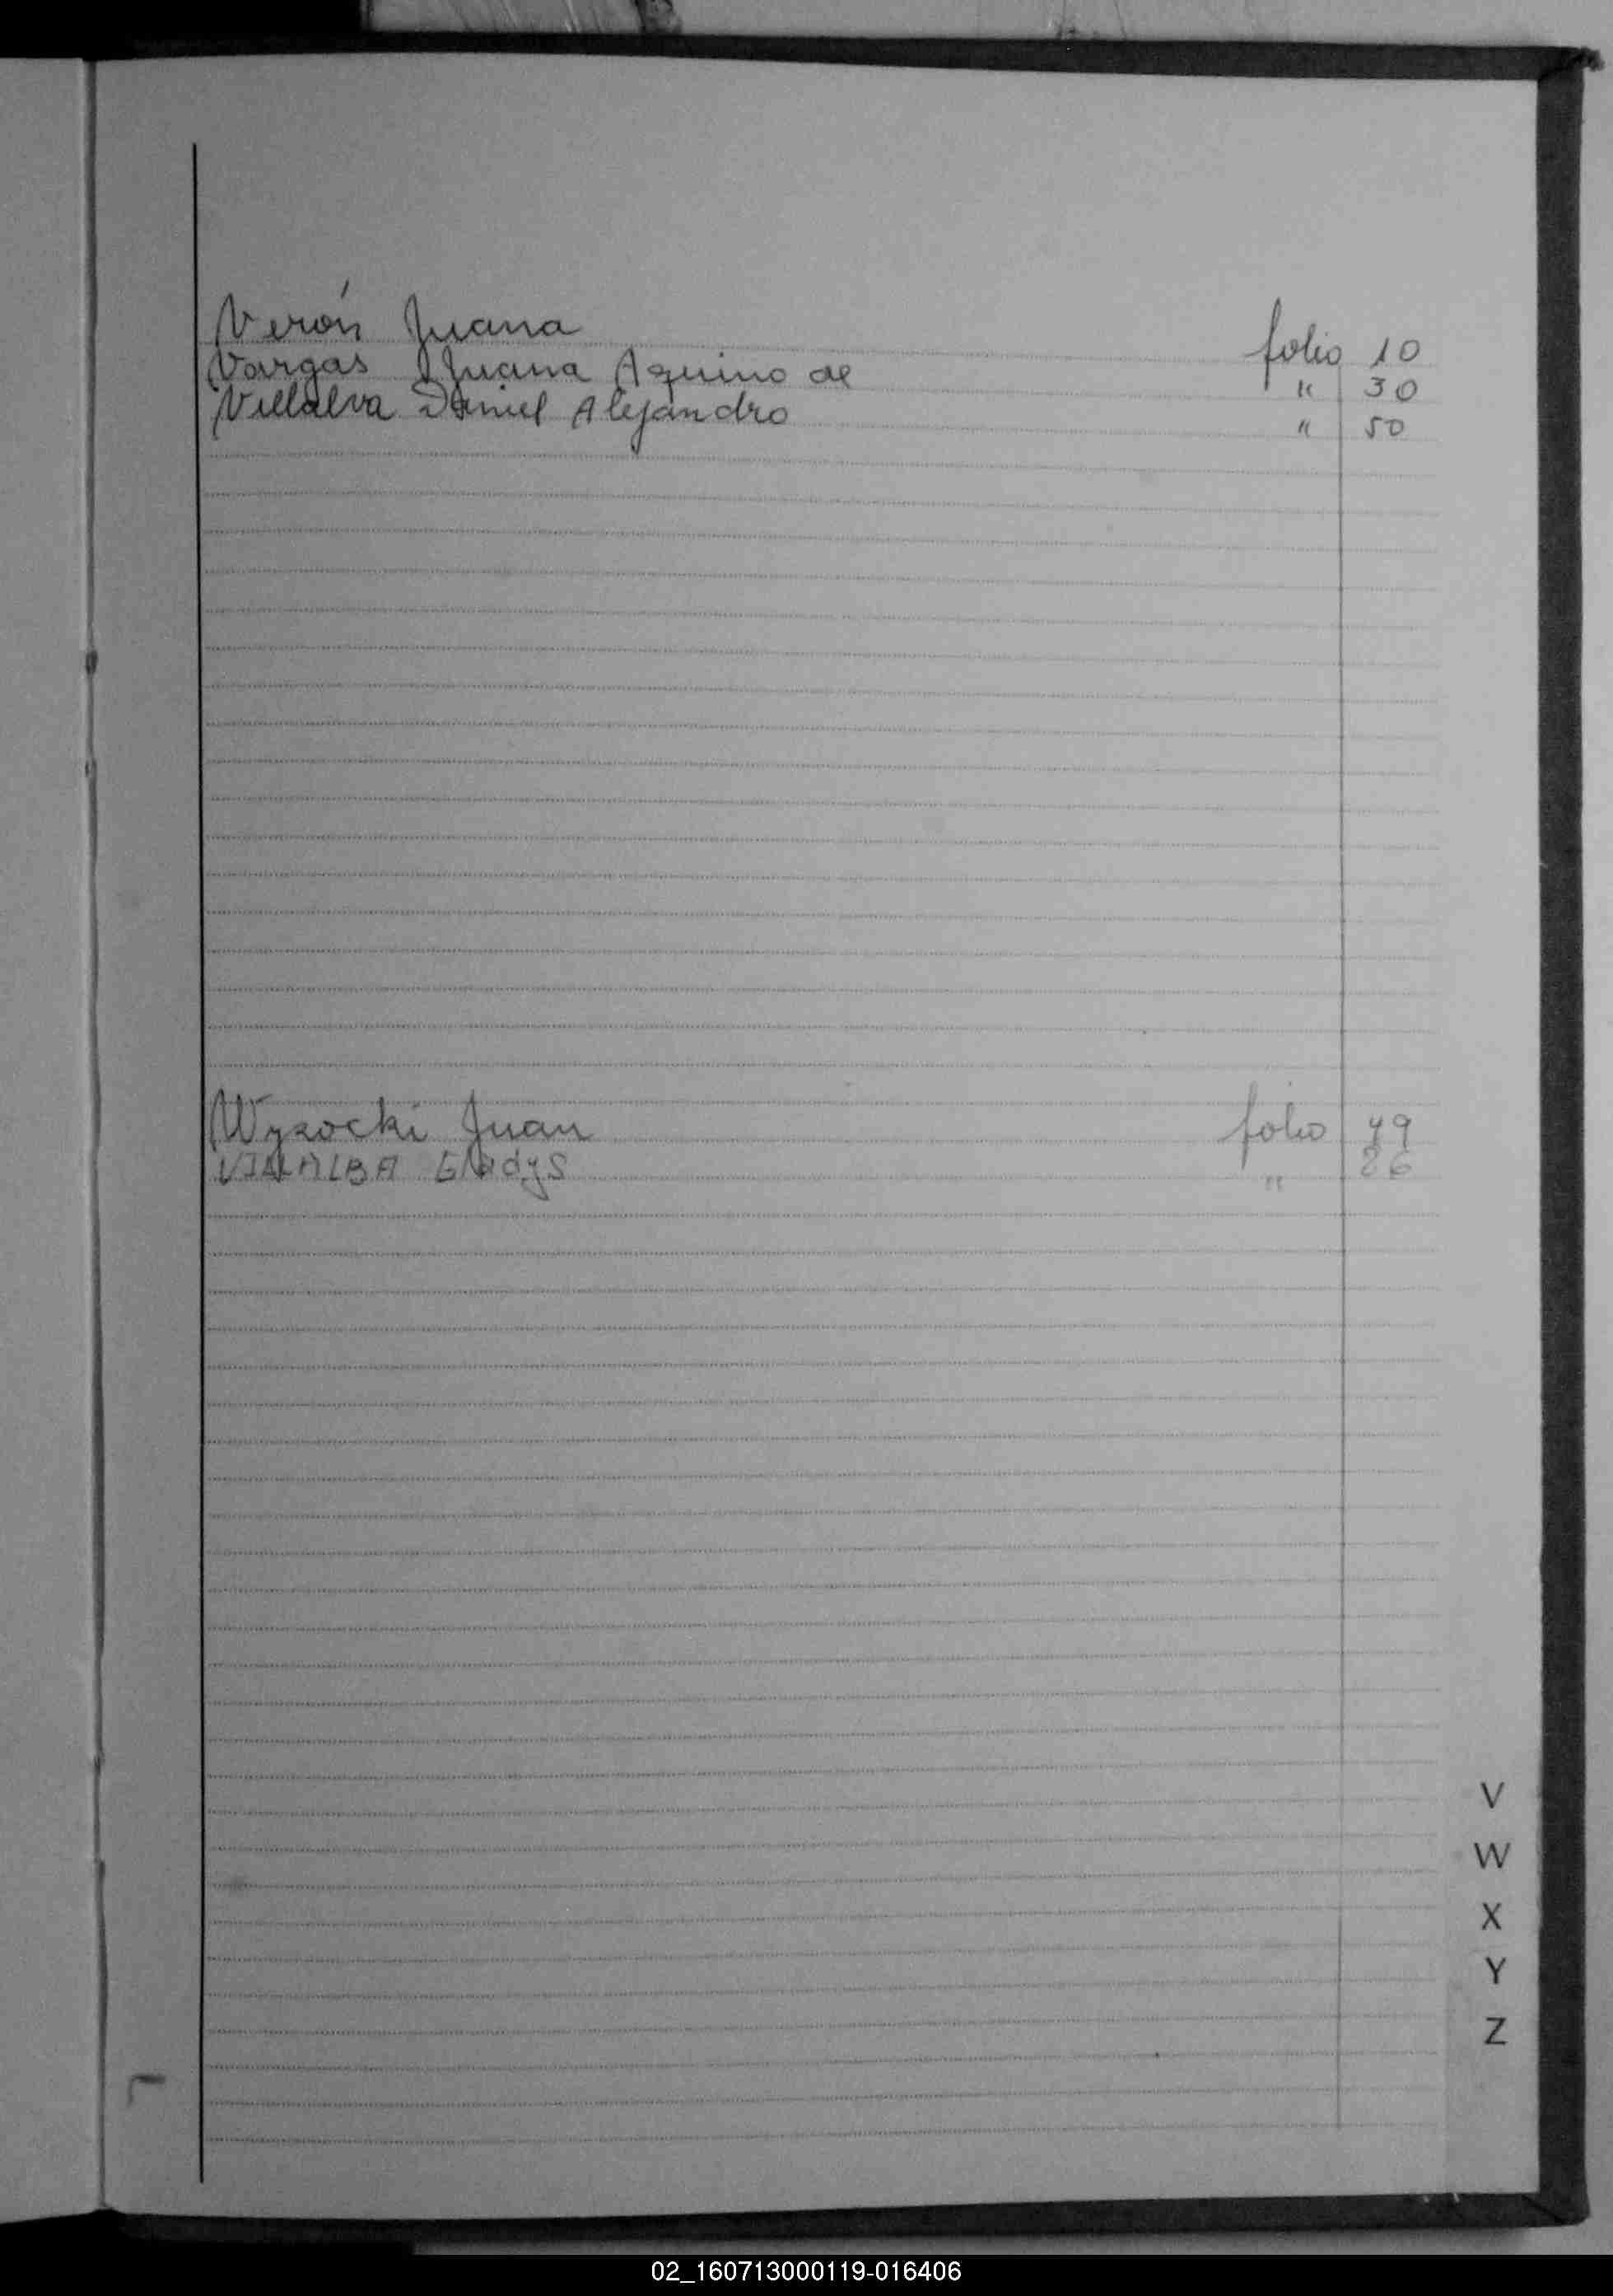 Verón Juana folio 10
Vargas Juana Aquino de " 30
Villalva Daniel Alejandro " 50
Wysocki Juan folio 49
VILLALBA Gladys " 26
V
W
X
Y
Z
02_160713000119-016406